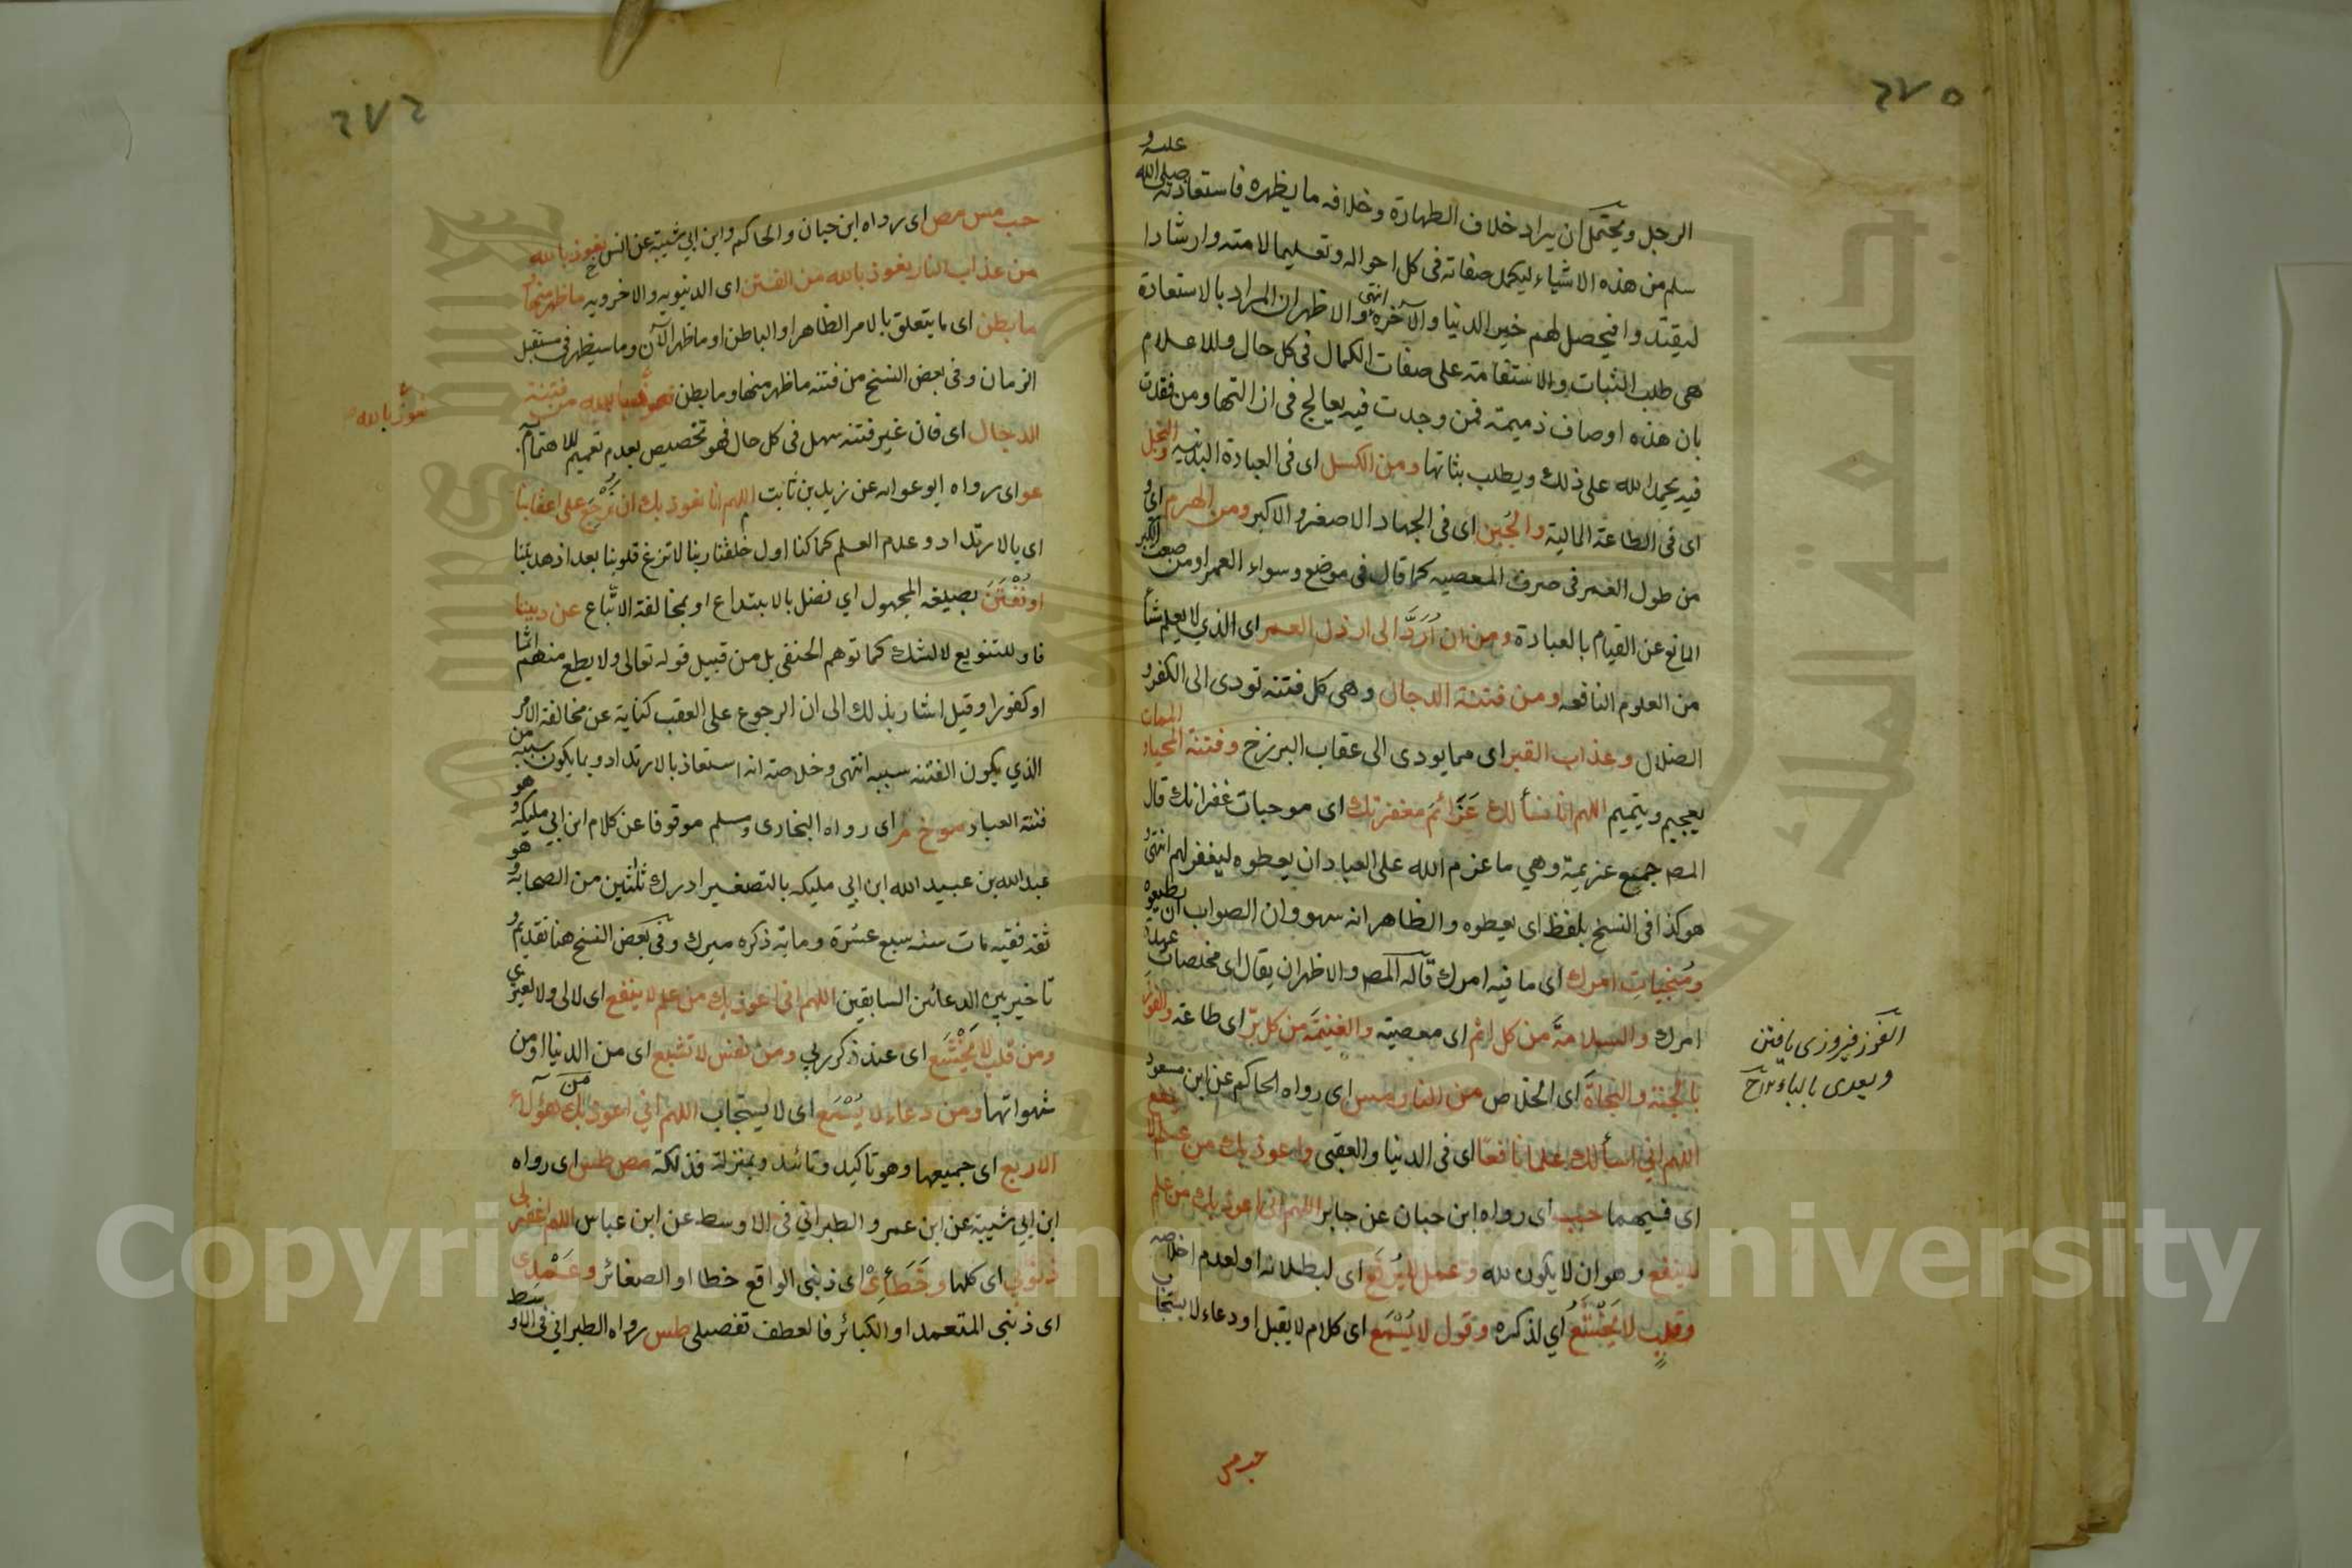 ٢٧٥
عليه و
صلى الله
الرجل ويحتمل ان يراد خلاف الطهارة وخلافه ما يظهره فاستعاذته
سلم من هذه الاشياء ليكمل صفاته فى كل احواله وتعليما لامته وارشادا
ليقتدوا فيحصل لهم خير الدنيا والآخرة انتهى والاظهر ان المراد بالاستعاذة
هى طلب الثبات والاستقامة على صفات الكمال فى كل حال وللاعلام
بان هذه اوصاف ذميمة فمن وجدت فيه يعالج فى ازالتها ومن فقدت
فيه يحمد الله على ذلك ويطلب ثباتها ومن الكسل اى فى العبادة البدنيه والبخل
اى فى الطاعة المالية والجُبن اى فى الجهاد الاصغر والاكبر ومن الهرم اى و
من طول العمر فى صرف المعصيه كما قال فى موضع وسواء العمر او من ضعف الكبر
المانع عن القيام بالعبادة ومن ان اُرَدَّ الى ارذل العمر اى الذي لا يعلم شأ
من العلوم النافعه ومن فتنة الدجال وهى كل فتنه تودى الى الكفر و
الضلال وعذاب القبر اى مما يودى الى عقاب البرزخ وفتنة المحياء الممات
يعجيم ويتميم اللهم انا نسألك عَزَائمَ مغفرتك اى موجبات غفرانك قال
المصـ جميع عزيمة وهي ما عزم الله على العباد ان يعطوه ليغفر لهم انتهى و
هو كذا فى النسخ بلفظ اى يعطوه والظاهر انه سهو وان الصواب ان يطيعوه
ومُنجيات امرك اى ما فيه امرك قاله المصـ والاظهر ان يقال اى مخلصات عهدة
امرك والسلامةَ من كل اثم اى معصيته والغنيمَة من كل برّ اى طاعة والفوزَ
بالجنة والنجاةَ اى الخلاص من النار مس اى رواه الحاكم عن ابن مسعود
اللهم اني اسألك علما نافعًا اى فى الدنيا والعقبى واعوذ بك من علم لا ينفع
اى فيهما حب اى رواه ابن حبان عن جابر اللهم انى اعوذ بك من علم
لا ينفع وهو ان لا يكون لله وعمل لا يُرفَع اى لبطلانه او لعدم اخلاصه
وقلبٍ لا يَخْشَعُ اي لذكره وقول لا يُسْمَع اى كلام لا يقبل او دعاء لا يستجاب
حب مس
الفوز فيروزى يافتن
ويعدى بالباء
٢٧٤
حب مس مص اى رواه ابن حبان والحاكم وابن ابي شيبة عن انس نعوذ بالله
من عذاب النار نعوذ بالله من الفتن اى الدنيويه والاخرويه ما ظهر منها و
ما بطن اى ما يتعلق بالامر الظاهر او الباطن او ما ظهر الآن وما سيظهر فى مستقبل
الزمان وفى بعض النسخ من فتنه ما ظهر منها وما بطن نعوذ بالله من فتنة
نعوذ بالله
الدجال اى فان غير فتنه سهل فى كل حال فهو تخصيص بعدم تعميم للاهتمام
عو اى رواه ابو عوانه عن زيد بن ثابت اللهم انا نعوذ بك ان نَرْجِعَ على اعقابنا
اى بالارتداد و عدم العلم كما كنا اول خلقنا ربنا لا تزغ قلوبنا بعد اذ هديتنا
او نُفْتَنَ بصيغه المجهول اي نضل بالابتداع او بمخالفة الاتّباع عن ديننا
فاو للتنويع لا للشك كما توهم الحنفى بل من قبيل قوله تعالى ولا يطع منهم اثما
او كفورا وقيل اشار بذلك الى ان الرجوع على العقب كناية عن مخالفة الامر
الذي يكون الفتنه سببه انتهى وخلاصته انه استعاذ بالارتداد و بما يكون سببه من
فتنة العباد موخ م اى رواه البخارى ومسلم موقوفا عن كلام ابن ابي مليكه و هو
عبد الله بن عبيد الله ابن ابي مليكه بالتصغير ادرك ثلثين من الصحابه و هو
ثقه فقيه مات سنه سبع عشرة ومايه ذكره ميرك وفى بعض النسخ هنا تقديم و
تاخير بين الدعائين السابقين اللهم انى اعوذ بك من علم لا ينفع اى لا لى ولا لغيرى
ومن قلب لا يَخْشَع اى عند ذكر ربي ومن نفس لا تشبع اى من الدنيا او من
شهواتها ومن دعاء لا يُسْمَع اى لا يستجاب اللهم اني اعوذ بك من هؤلاء
الاربع اى جميعها وهو تاكيد وتائيد وبمنزلة فذلكة مص طس اى رواه
ابن ابي شيبة عن ابن عمر والطبراني فى الاوسط عن ابن عباس اللهم اغفر لى
ذنوبي اى كلها وخَطَأِىْ اى ذنبى الواقع خطا او الصغائر وعَمْدِى
اى ذنبى المتعمد او الكبائر فالعطف تفصيلى طس رواه الطبراني فى الاوسط
Copyright © King Saud University